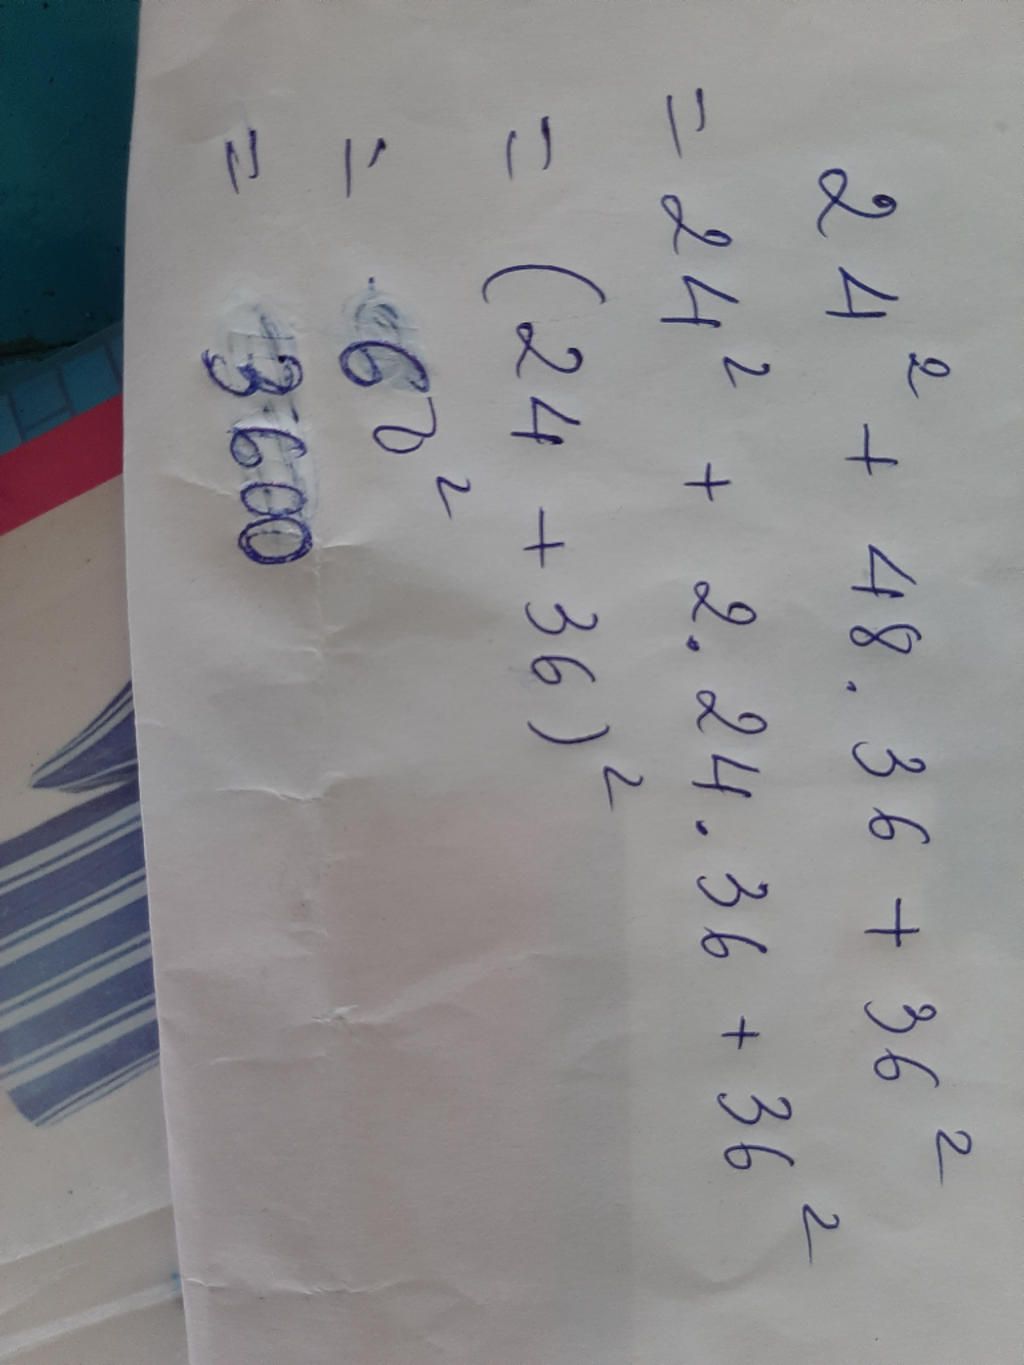 24² + 48.36 + 36²
= 24² + 2.24.36 + 36²
= (24 + 36)²
= 60²
= 3600